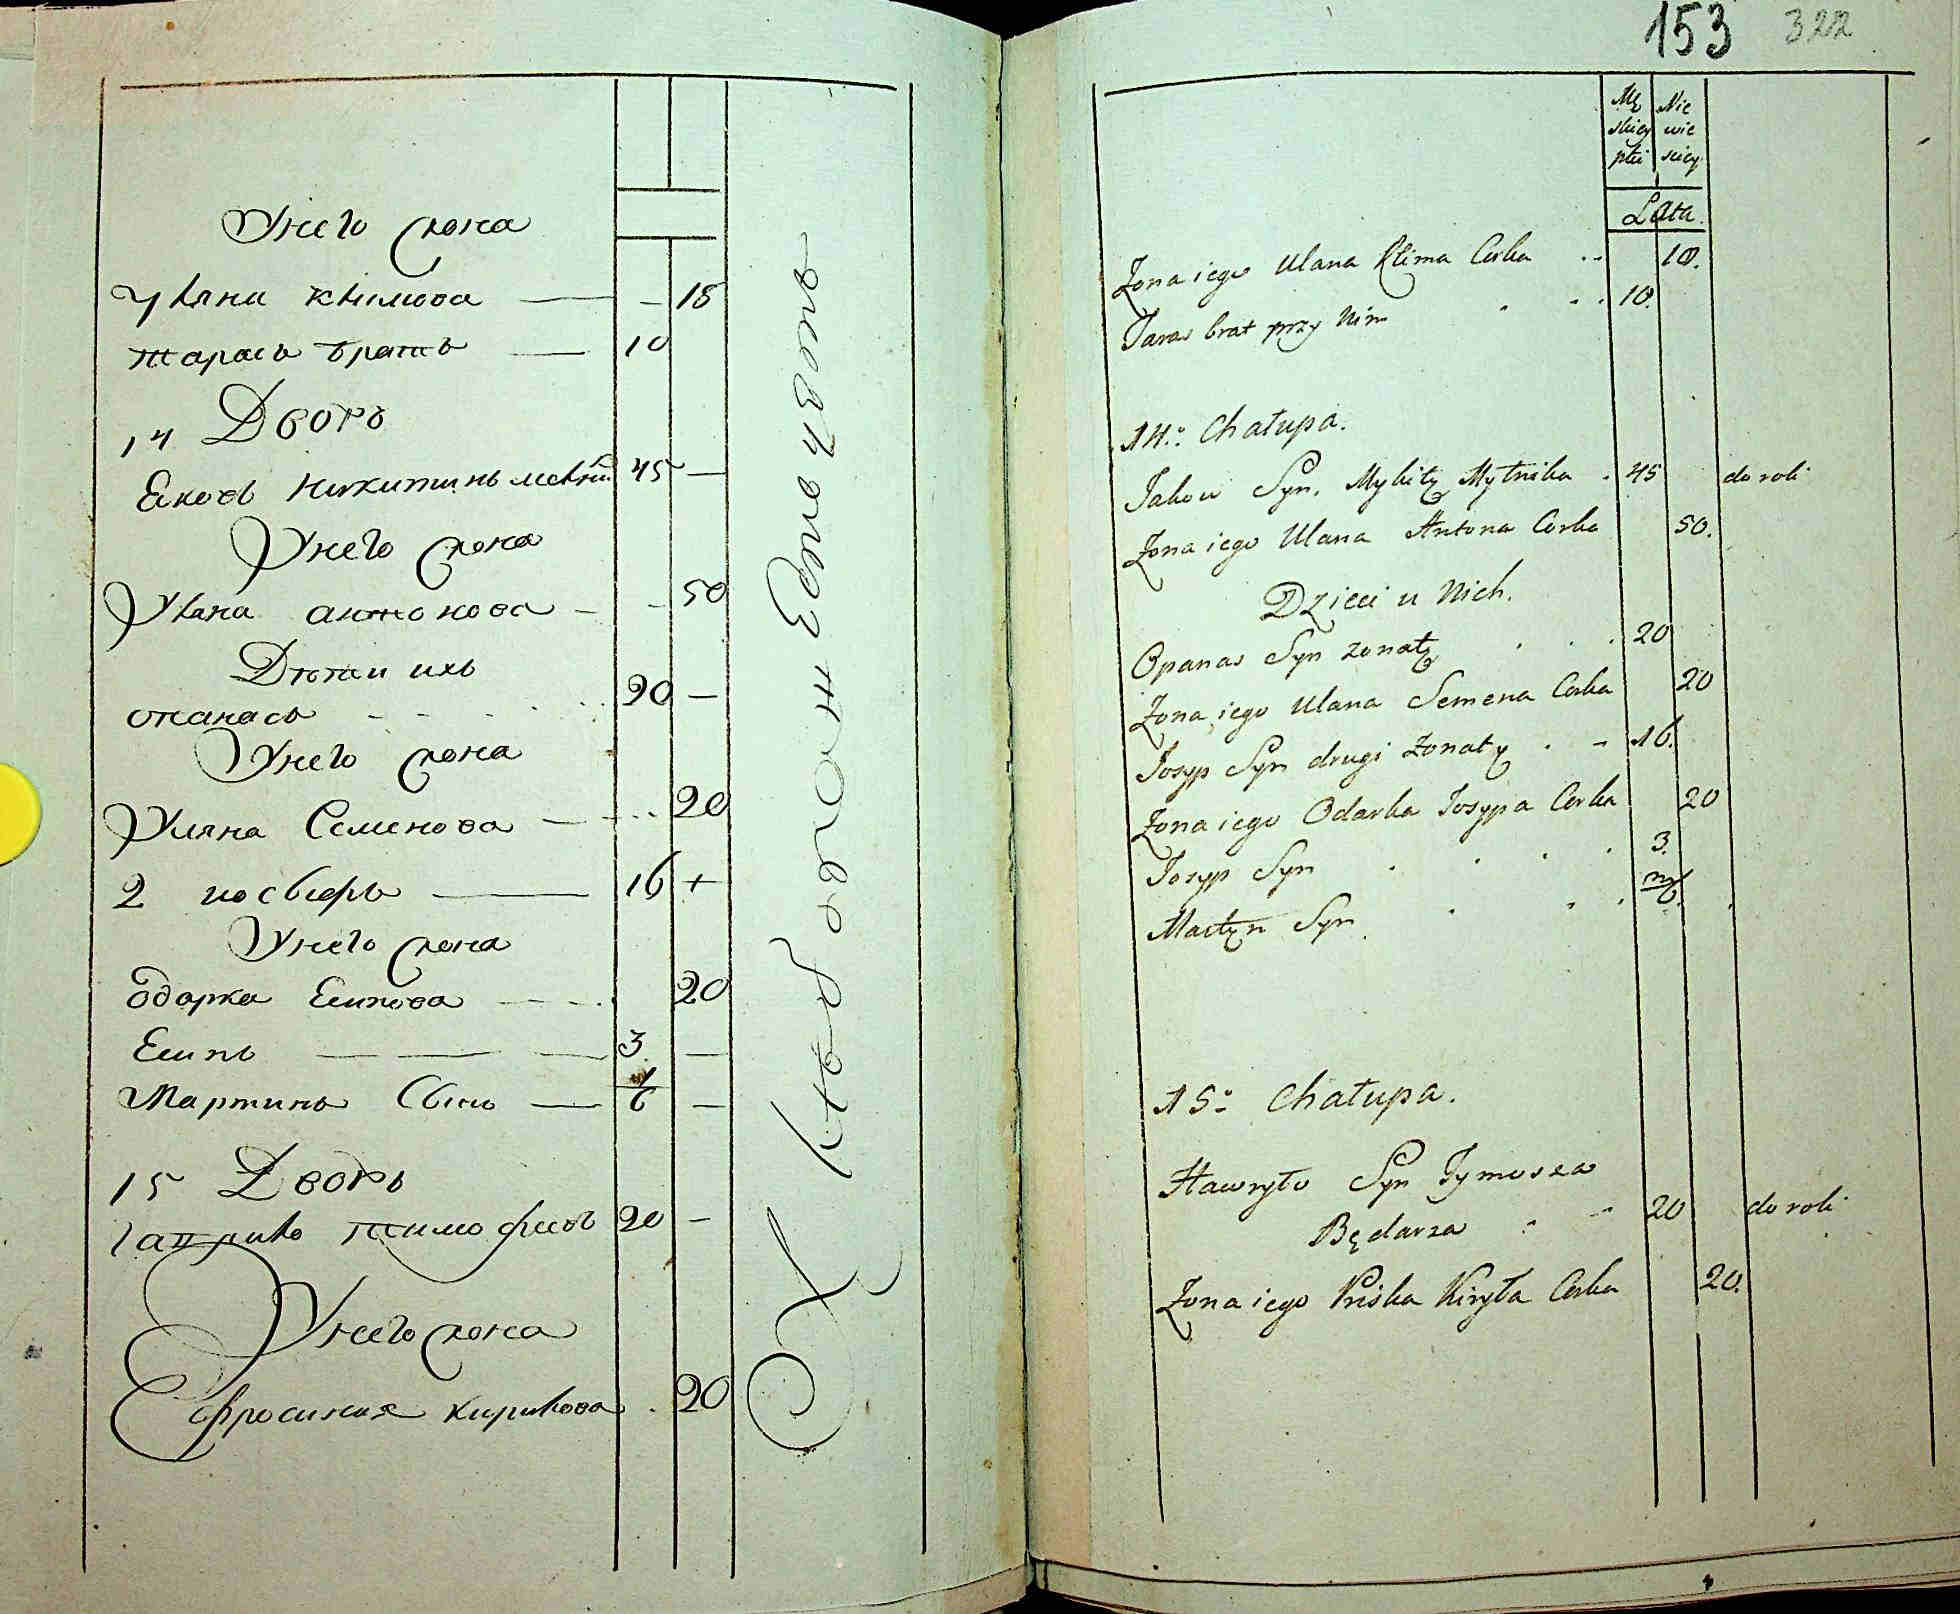 Унего жена
Уляна климова — - 18
тарасъ братъ — 10
14 Дворъ
Яковъ никитинъ 45 —
Унего жена
Уляна антонова - - 50
Дети ихъ
опанасъ 20 —
Унего жена
Уляна Семенова — 20
2 иосъифъ — 16 +
Унего жена
Одарка Есипова 20
Есипъ — 3 —
Мартинъ Сынъ — 1/6 —
15 Дворъ
гаврило тимофеевъ 20 —
Унего жена
Ефросиния кирилова 20
К хлебопашеству
153 322
Mę Nie
skiey wie
płci sciey
Lata.
Zona iego Ulana Klima Corka 18.
Taras brat przy Nim 10.
14.° Chałupa.
Jakow Syn, Mykity Mytnika 45 do roli
Zona iego Ulana Antona Corka 50.
Dzieci u Nich.
Opanas Syn zonaty 20
Zona iego Ulana Semena Corka 20
Josyp Syn drugi zonaty 16.
Zona iego Odarka Josypa Corka 20
Josyp Syn 3.
Martyn Syn m/6.
15.° Chałupa.
Hawryło Syn Tymosza
Będarza 20 do roli
Zona iego Priska Kiryła Corka 20.